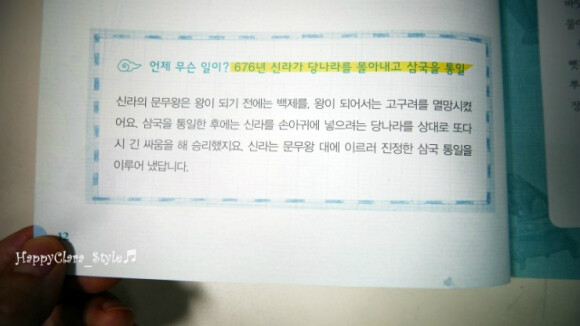 언제 무슨 일이? 676년 신라가 당나라를 몰아내고 삼국을 통일
신라의 문무왕은 왕이 되기 전에는 백제를, 왕이 되어서는 고구려를 멸망시켰
어요. 삼국을 통일한 후에는 신라를 손아귀에 넣으려는 당나라를 상대로 또다
시 긴 싸움을 해 승리했지요. 신라는 문무왕 대에 이르러 진정한 삼국 통일을
이루어 냈답니다.
12
HappyClara_Style♬